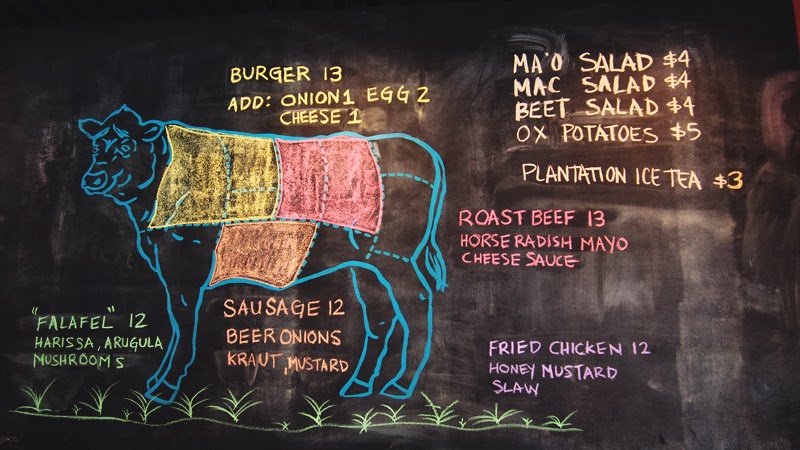 BURGER 13
ADD: ONION 1 EGG 2
CHEESE 1
MA'O SALAD $4
MAC SALAD $4
BEET SALAD $4
OX POTATOES $5
PLANTATION ICE TEA $3
ROAST BEEF 13
HORSERADISH MAYO
CHEESE SAUCE
"FALAFEL" 12
HARISSA, ARUGULA
MUSHROOMS
SAUSAGE 12
BEER ONIONS
KRAUT, MUSTARD
FRIED CHICKEN 12
HONEY MUSTARD
SLAW